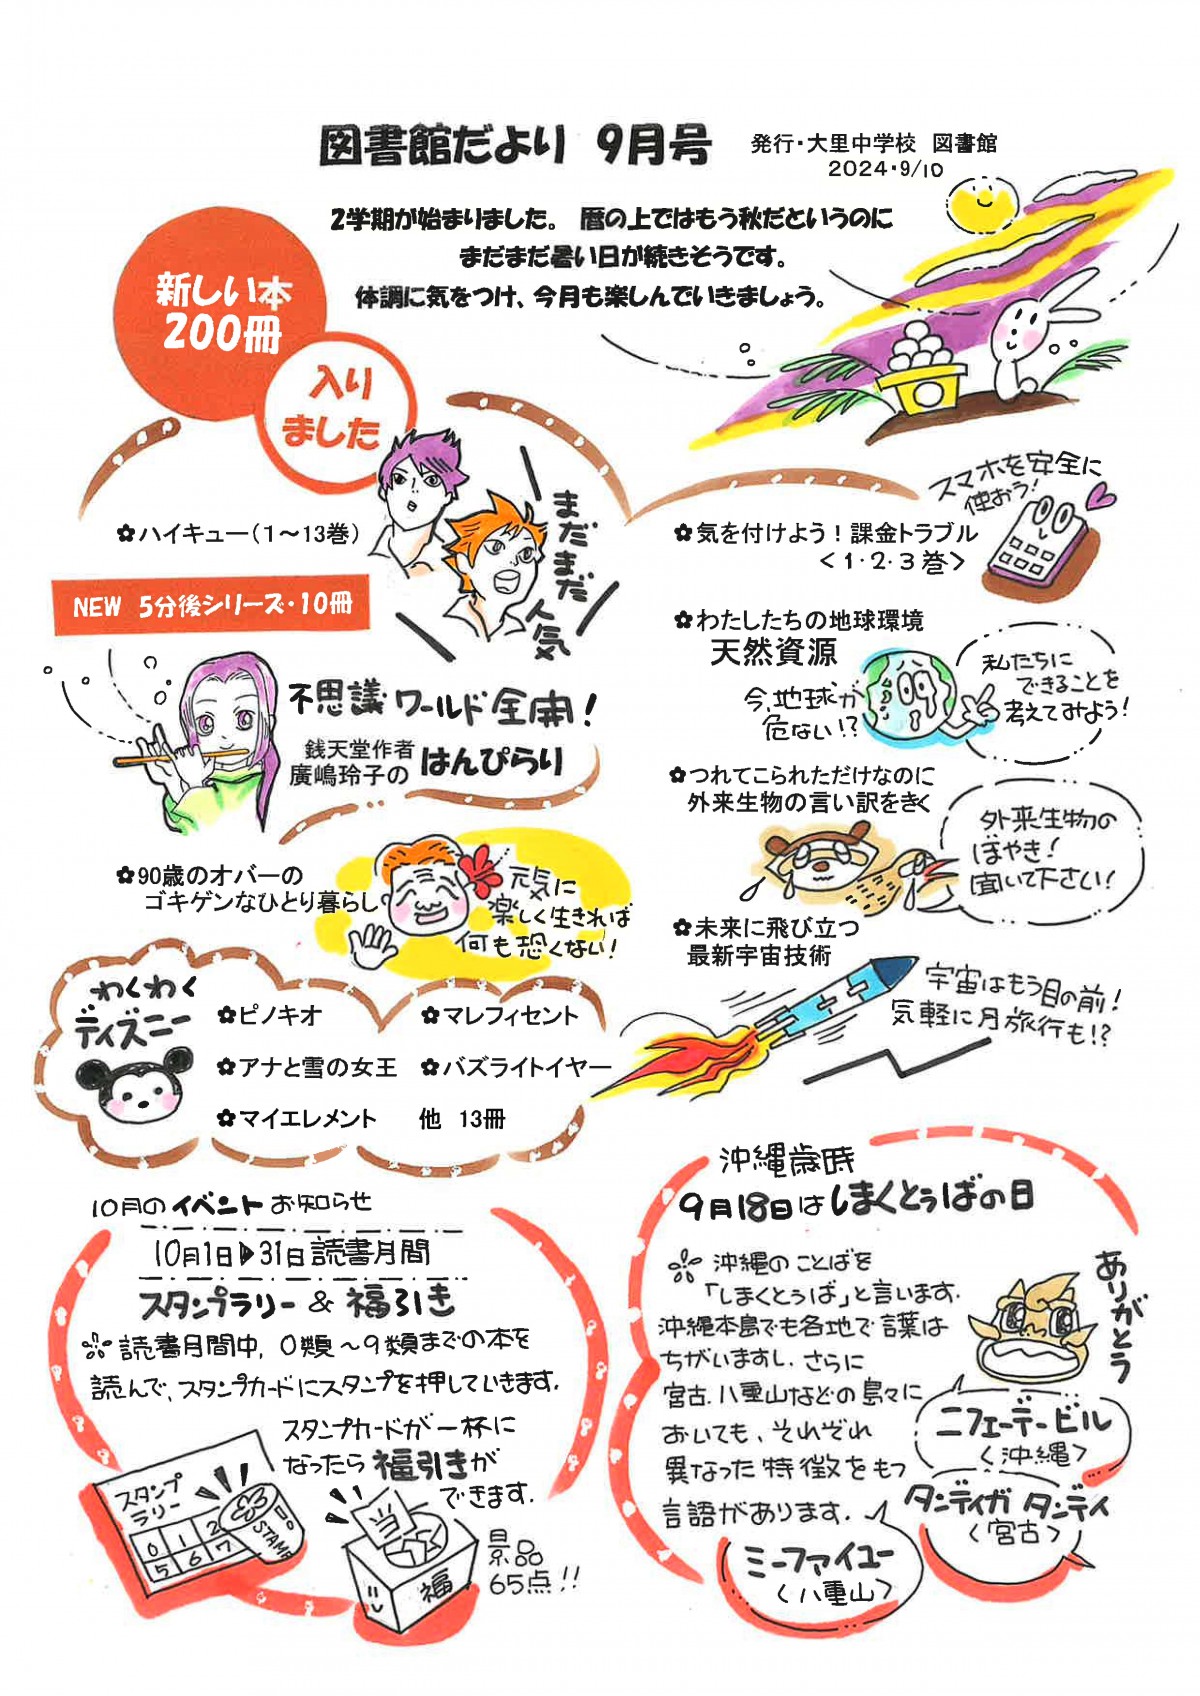 図書館だより 9月号
発行・大里中学校 図書館
2024・9/10
2学期が始まりました。 暦の上ではもう秋だというのに
まだまだ暑い日が続きそうです。
体調に気をつけ、今月も楽しんでいきましょう。
新しい本
200冊
入り
ました
✿ハイキュー(1〜13巻)
まだまだ人気
NEW 5分後シリーズ・10冊
不思議ワールド全開!
銭天堂作者
廣嶋玲子の はんぴらり
✿90歳のオバーの
ゴキゲンなひとり暮らし
元気に
楽しく生きれば
何も恐くない!
わくわく
ディズニー
✿ピノキオ ✿マレフィセント
✿アナと雪の女王 ✿バズライトイヤー
✿マイエレメント 他 13冊
スマホを安全に
使おう!
✿気を付けよう!課金トラブル
<1・2・3巻>
✿わたしたちの地球環境
天然資源
今、地球が
危ない!?
私たちに
できることを
考えてみよう!
✿つれてこられただけなのに
外来生物の言い訳をきく
外来生物の
ぼやき!
聞いて下さい!
✿未来に飛び立つ
最新宇宙技術
宇宙はもう目の前!
気軽に月旅行も!?
10月のイベントお知らせ
10月1日▶31日読書月間
スタンプラリー&福引き
読書月間中、0類〜9類までの本を
読んで、スタンプカードにスタンプを押していきます.
スタンプカードが一杯に
なったら福引きが
できます.
スタンプ
ラリー
0 1 2
5 6 7
STAMP
当
福
景品
65点!!
沖縄歳時
9月18日はしまくとぅばの日
沖縄のことばを
「しまくとぅば」と言います.
沖縄本島でも各地で言葉は
ちがいますし、さらに
宮古、八重山などの島々に
おいても、それぞれ
異なった特徴をもつ
言語があります.
ありがとう
ニフェーデービル
<沖縄>
タンディガタンディ
<宮古>
ミーファイユー
<八重山>